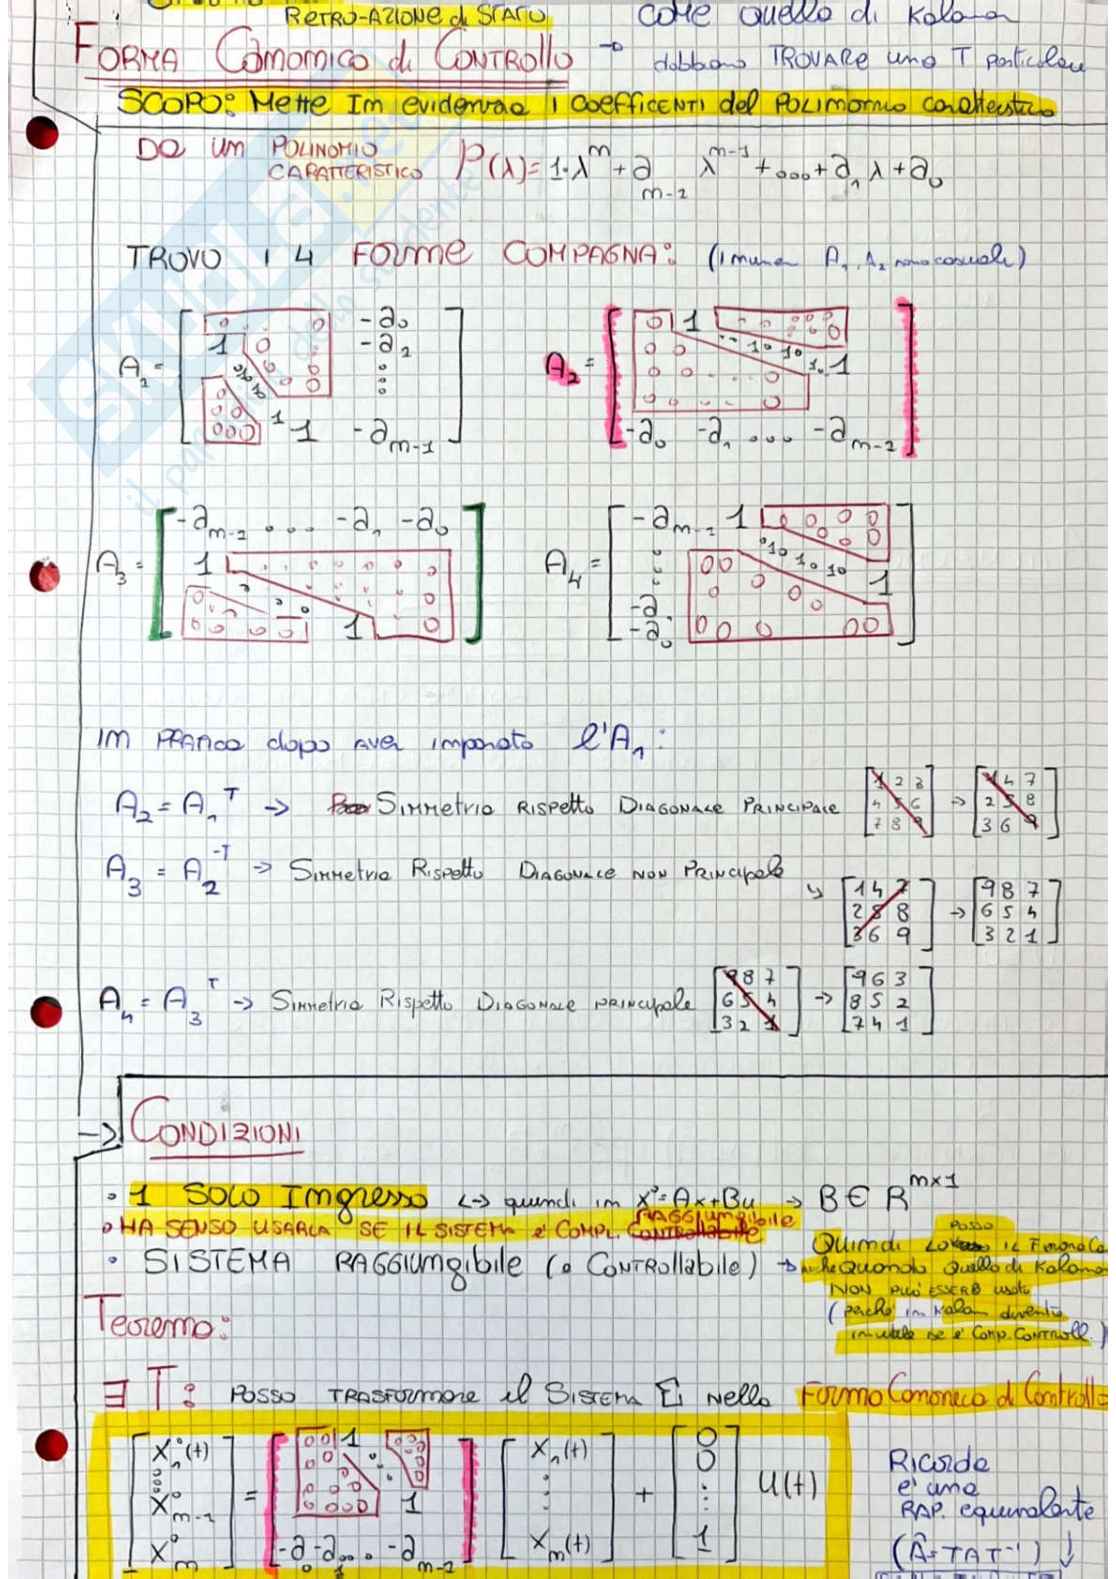 RETRO-AZIONE di STATO
come quello di Kalman
FORMA Canonica di CONTROLLO → dobbiamo TROVARE una T particolare
SCOPO: Mette In evidenza i coefficenti del POLINOMIO caratteristico
Da un POLINOMIO CARATTERISTICO P(λ)=1·λ^m+a_{m-1} λ^{m-1}+...+a_1 λ+a_0
TROVO i 4 FORME COMPAGNA: (i numeri A_1, A_2 sono casuali)
A_1 = [ 0 . . . 0 -a_0
1 0 -a_1
1 1 -a_{m-1} ]
A_2 = [ 0 1 0 0 0 0
0 0 1 0 1 0
0 0 . . . 0 1. 1
0 0 . . 0
-a_0 -a_1 ... -a_{m-1} ]
A_3 = [ -a_{m-1} . . . -a_1 -a_0
1 0
0 0 0 0 1 0 ]
A_4 = [ -a_{m-1} 1 0 0 0 0
0 0 1 0 1 0 1 0 1
-a_1
-a_0 0 0 0 0 0 ]
IN PRATICA dopo aver imparato l'A_1:
A_2 = A_1^T → Simmetria RISPETTO DIAGONALE PRINCIPALE [1 2 3 4 5 6 7 8 9] → [1 4 7 2 5 8 3 6 9]
A_3 = A_2^{-T} → Simmetria Rispetto DIAGONALE NON PRINCIPALE
↳ [1 4 7 2 5 8 3 6 9] → [9 8 7 6 5 4 3 2 1]
A_4 = A_3^T → Simmetria Rispetto DIAGONALE PRINCIPALE [9 8 7 6 5 4 3 2 1] → [9 6 3 8 5 2 7 4 1]
→ CONDIZIONI
• 1 SOLO Ingresso ↔ quindi in x°=Ax+Bu → B∈R^{m×1}
• HA SENSO USARLA SE IL SISTEMA è COMPL. RAGGiungibile
• SISTEMA RAGGIUngibile (o Controllabile) →
Quindi posso
anche Quando Quello di Kalman
NON può ESSERE usato
(perché in Kalman diventa
inutile se è Comp. Controll.)
Teorema:
∃ T: POSSO TRASFORMARE il SISTEMA Σ nella Forma Canonica di Controllo
[ x°_1(t)
x°_{m-1}
x°_m ] = [ 0 0 1 0 0 0
0 0 0 1
-a_0 -a_1 ... -a_{m-1} ] [ x_1(t)
x_m(t) ] + [ 0
0
1 ] U(t)
Ricorda
è una
RAP. equivalente
(Â=TAT^{-1}) ↓
SKUOLA.net
il paradiso dello studente